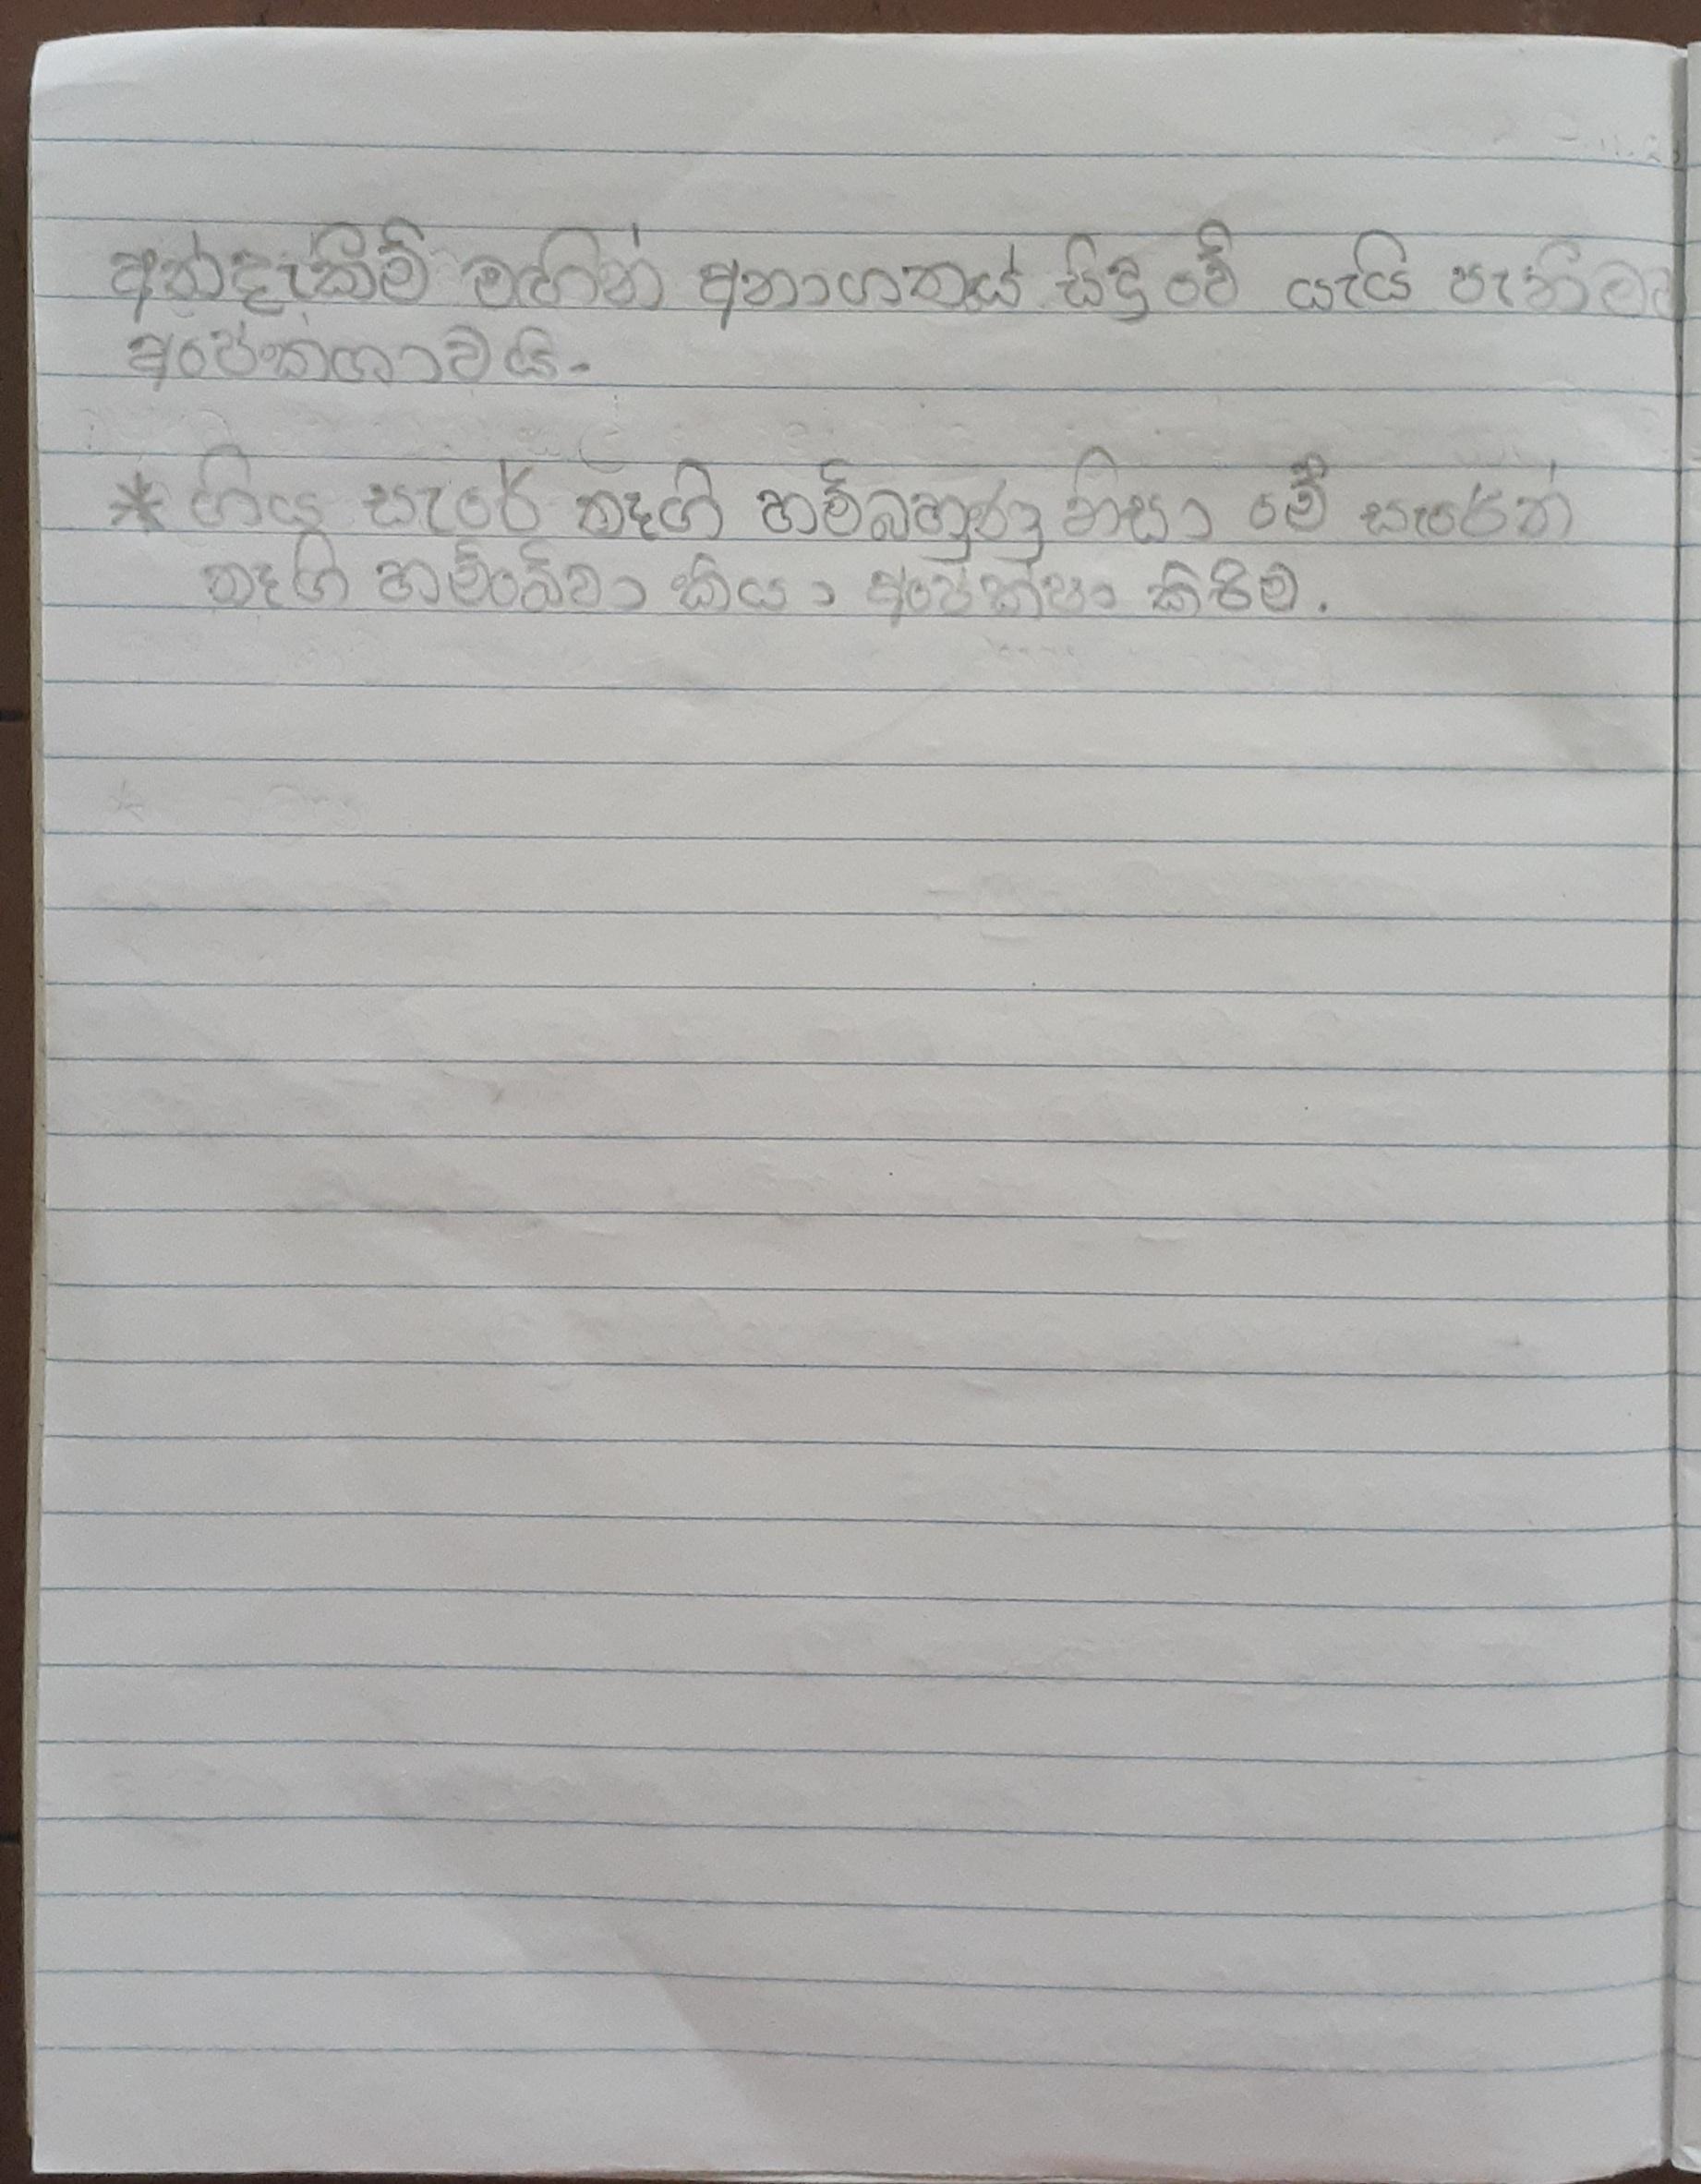 අත්දැකීම් මඟින් අනාගතය් සිදු වේ යැයි පැතීමට
අපේක්ශාවයි.
* ගිය සැරේ තෑගි හම්බහුණු නිසා මේ සැරේත්
තෑගි හම්බේවා කියා අපේක්ෂා කිරීම.